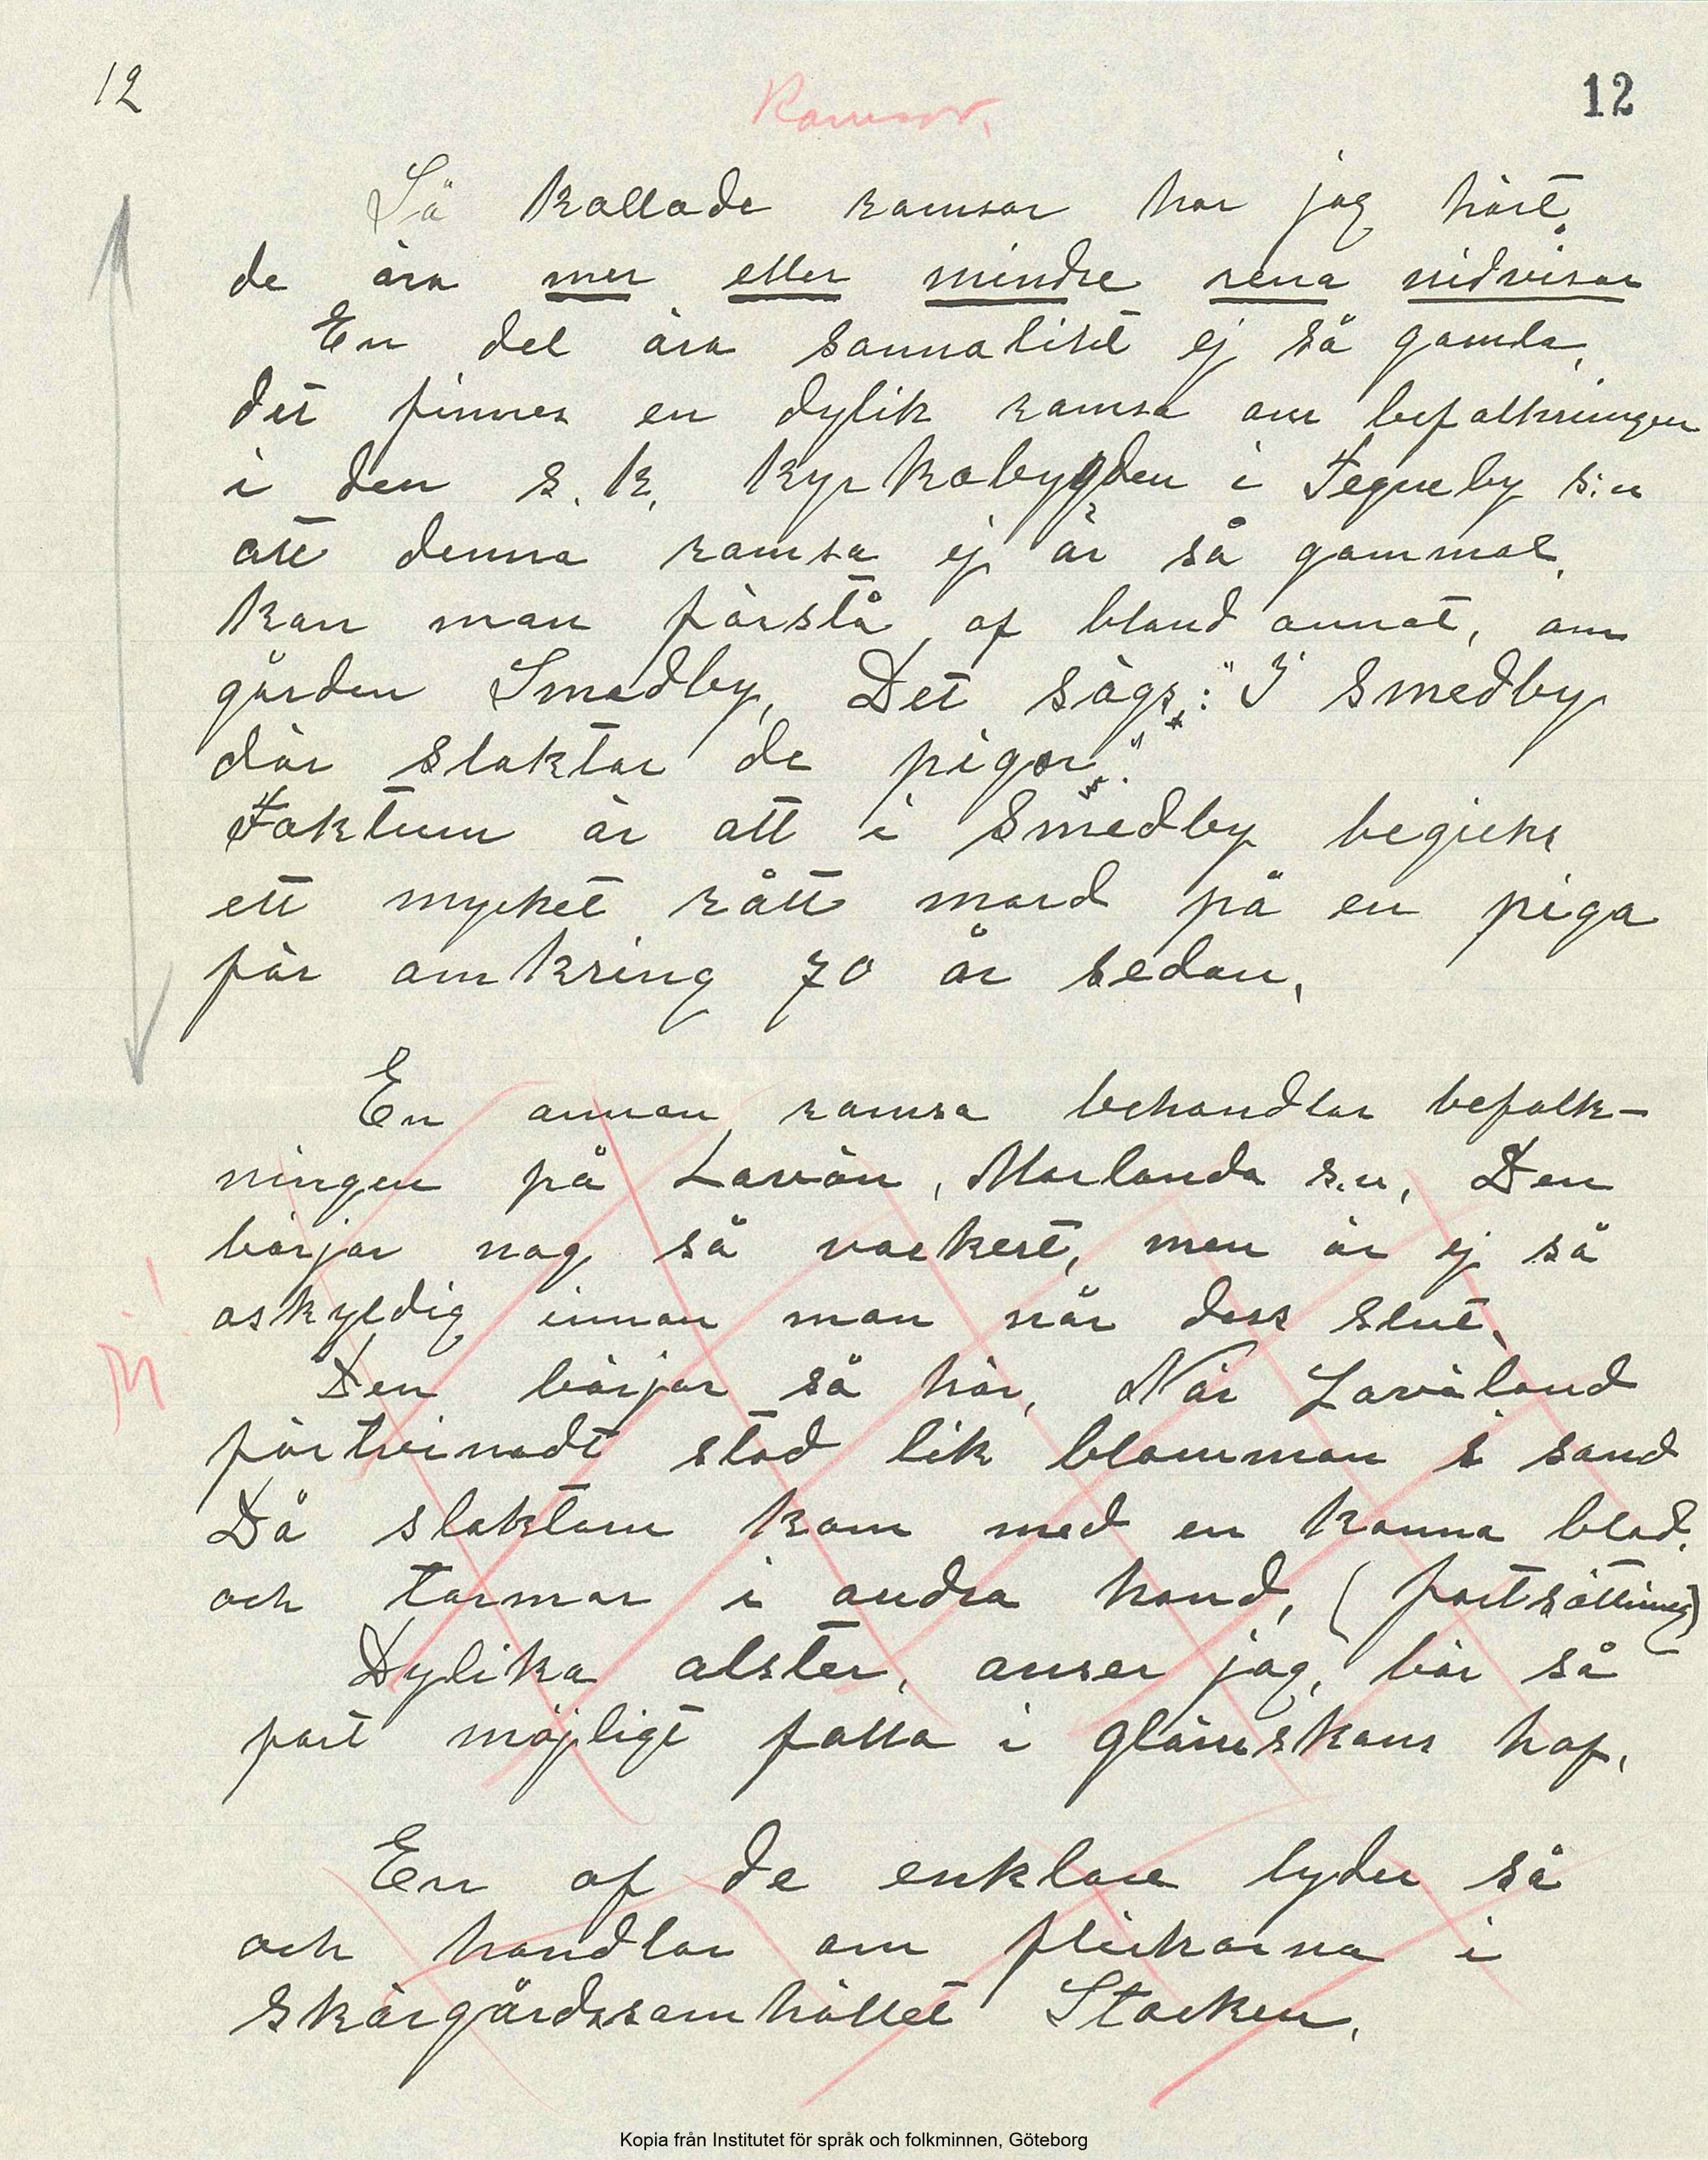 12
12
Ramsor.
Så kallade ramsor har jag hört,
de ära mer eller mindre rena nidvisor
En del ära sannolikt ej så gamla,
det finnes en dylik ramsa om befolkningen
i den s.k. kyrkobygden i Tegneby s:n
att denna ramsa ej är så gammal,
kan man förstå af bland annat, om
gården Smedby, Det sägs: "I Smedby
där slaktar de pigor".
Faktum är att i Smedby begicks
ett mycket rått mord på en piga
för omkring 70 år sedan.
En annan ramsa behandlar befolk-
ningen på Lavön, Morlanda s:n, Den
börjar nog så vackert, men är ej så
oskyldig innan man når dess slut.
Den börjar så här, När Lavöland
förtvinadt stod lik blomman i sand
Då slaktarn kom med en kanna blod,
och tarmar i andra hand, (fortsättning)
Dylika alster, anser jag, bör så
fort möjligt falla i glömskans haf.
En af de enklare lyder så
och handlar om flickorna i
skärgårdssamhället Stocken.
Kopia från Institutet för språk och folkminnen, Göteborg